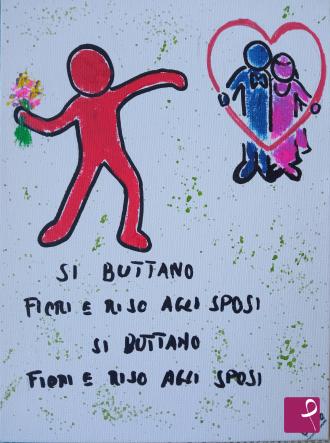 SI BUTTANO
FIORI E RISO AGLI SPOSI
SI BUTTANO
FIORI E RISO AGLI SPOSI